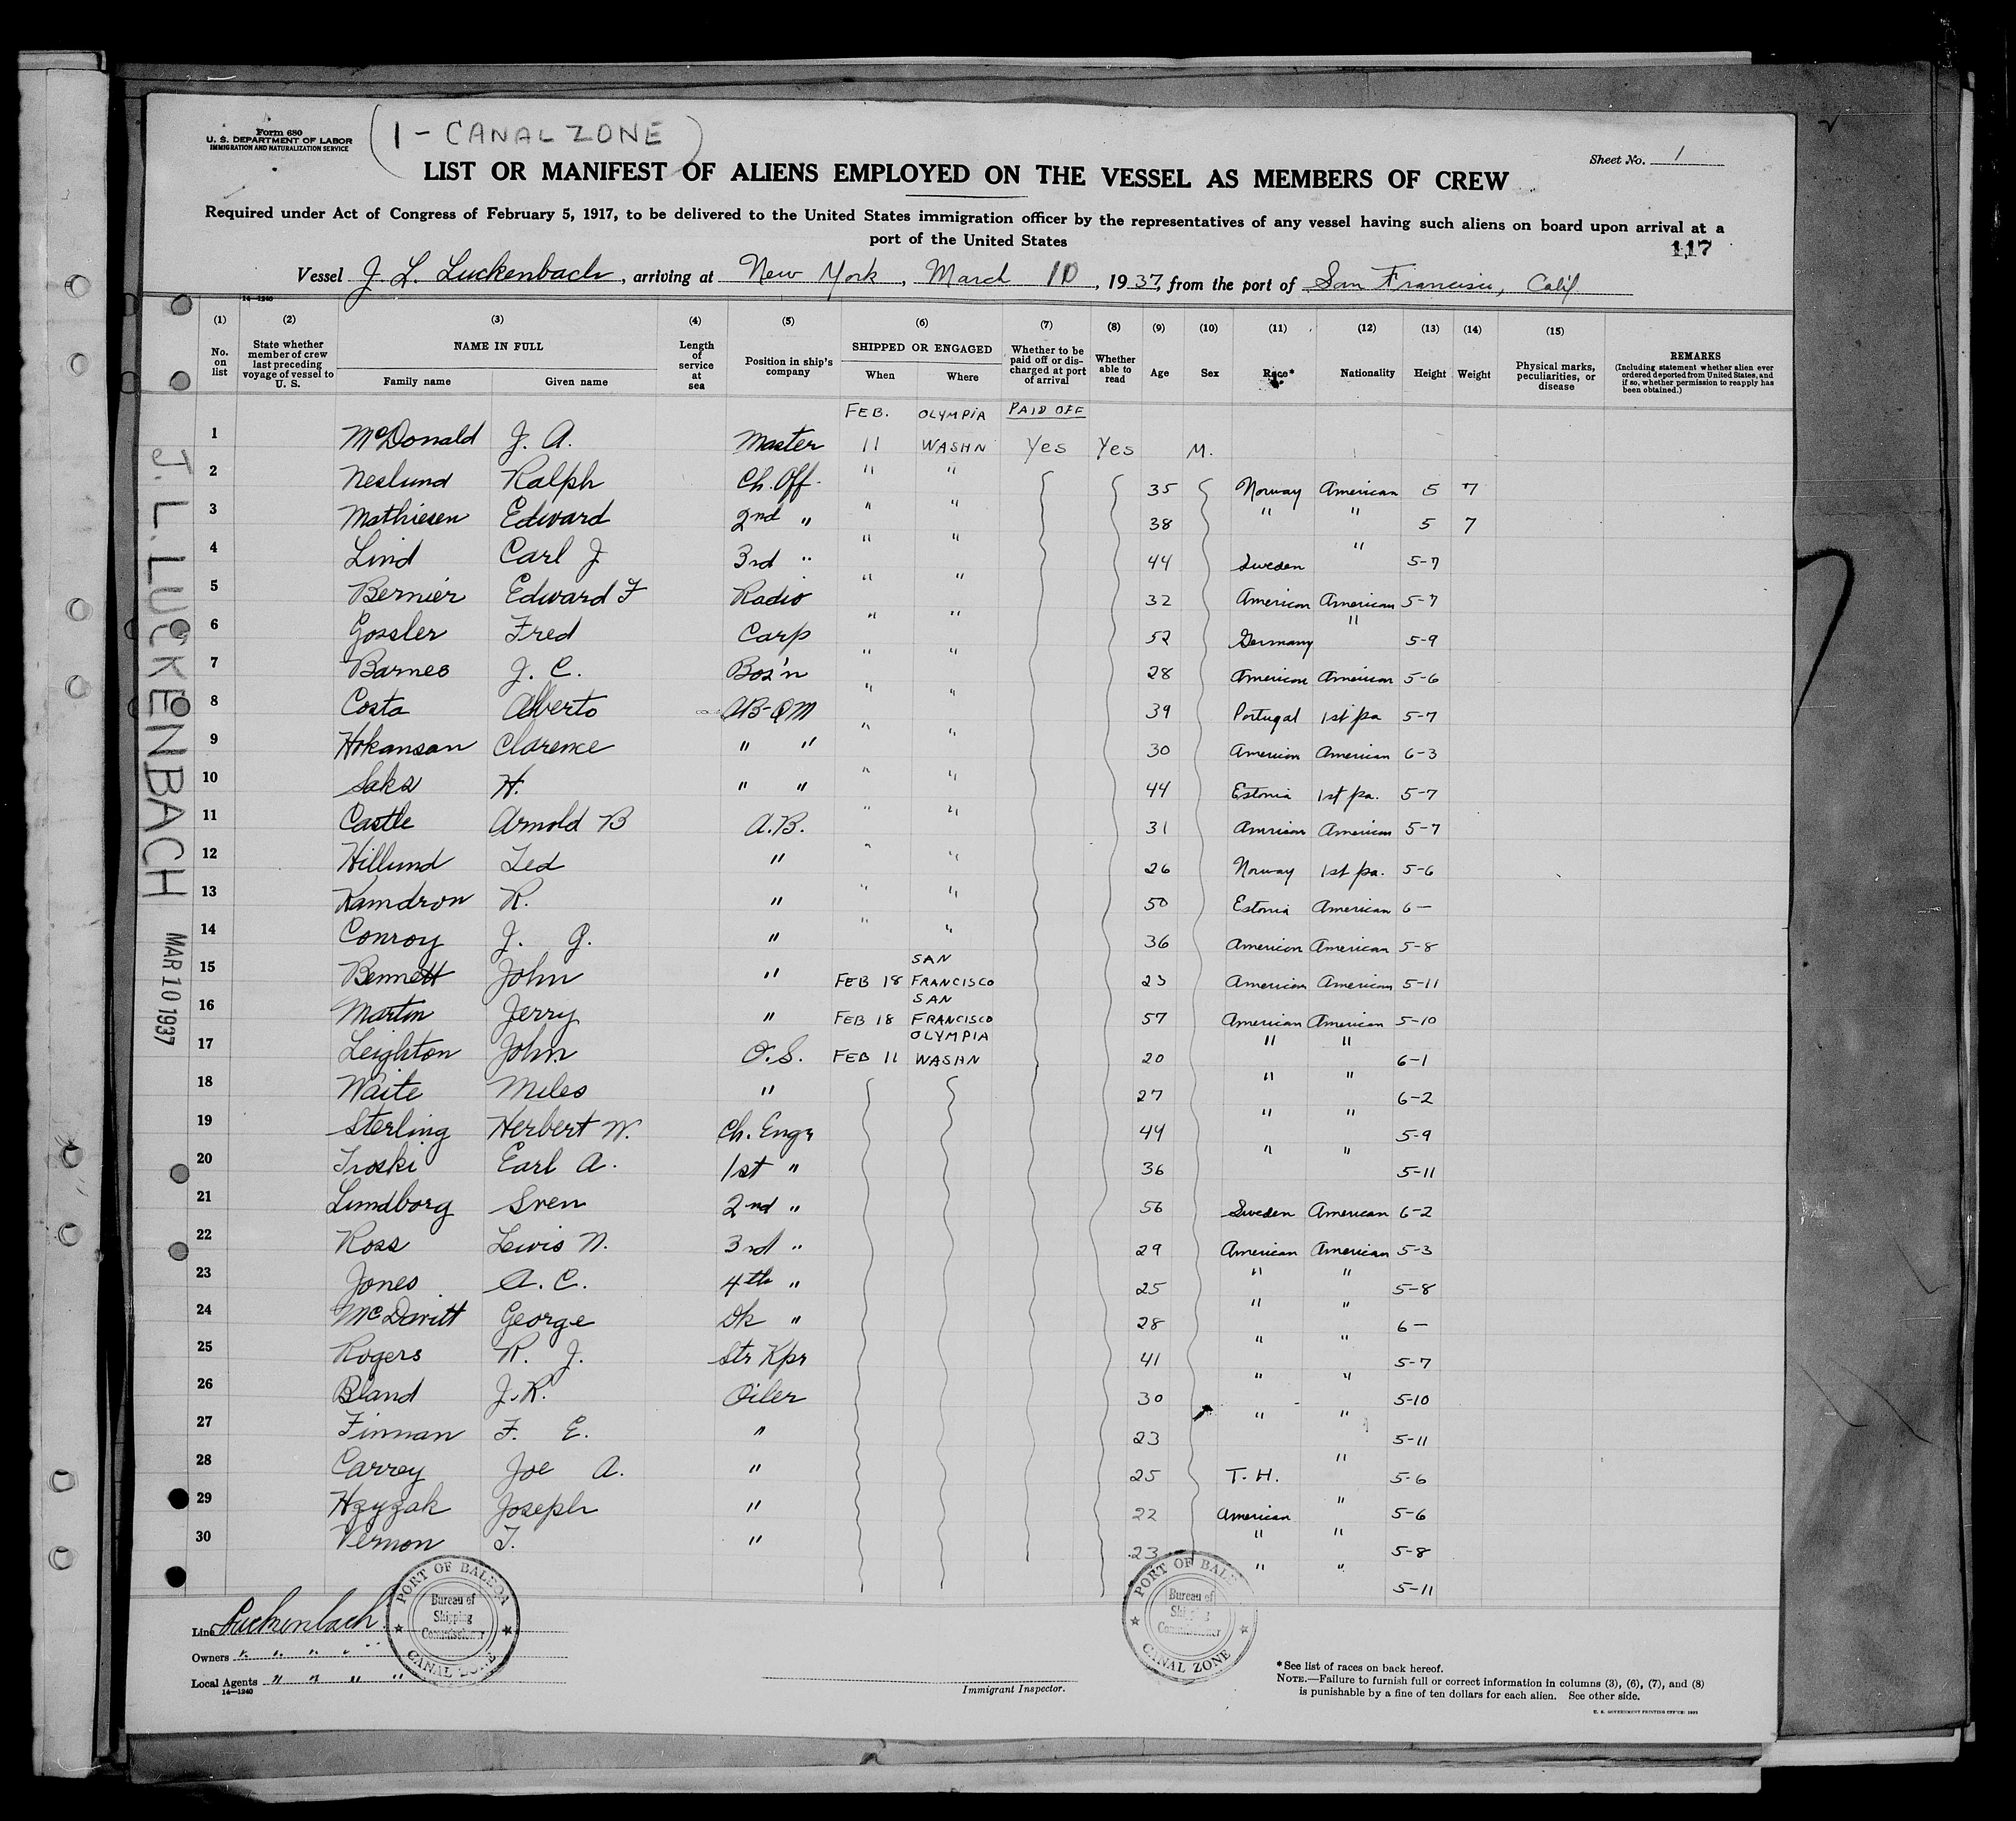 Form 680
U. S. DEPARTMENT OF LABOR
IMMIGRATION AND NATURALIZATION SERVICE
(1 - CANAL ZONE)
Sheet No. 1
LIST OR MANIFEST OF ALIENS EMPLOYED ON THE VESSEL AS MEMBERS OF CREW
Required under Act of Congress of February 5, 1917, to be delivered to the United States immigration officer by the representatives of any vessel having such aliens on board upon arrival at a
port of the United States
117
Vessel J. L. Luckenbach, arriving at New York, March 10, 1937, from the port of San Francisco, Calif
14-1240
(1) (2) (3) (4) (5) (6) (7) (8) (9) (10) (11) (12) (13) (14) (15)
No. on list
State whether member of crew last preceding voyage of vessel to U. S.
NAME IN FULL
Family name Given name
Length of service at sea
Position in ship's company
SHIPPED OR ENGAGED
When Where
Whether to be paid off or discharged at port of arrival
Whether able to read
Age Sex Race* Nationality Height Weight
Physical marks, peculiarities, or disease
REMARKS
(Including statement whether alien ever ordered deported from United States, and if so, whether permission to reapply has been obtained.)
FEB. OLYMPIA PAID OFF
1 McDonald J. A. Master 11 WASHN Yes Yes M.
2 Neslund Ralph Ch. Off. " " 35 Norway American 5 7
3 Mathiesen Edward 2nd " " " 38 " " 5 7
4 Lind Carl J 3rd " " " 44 Sweden " 5-7
5 Bernier Edward F Radio " " 32 American American 5-7
6 Gossler Fred Carp " " 52 Germany " 5-9
7 Barnes J. C. Bos'n " " 28 American American 5-6
8 Costa Alberto AB-QM " " 39 Portugal 1st pa 5-7
9 Hokanson Clarence " " " " 30 American American 6-3
10 Saks H. " " " " 44 Estonia 1st pa. 5-7
11 Castle Arnold B A.B. " " 31 American American 5-7
12 Hillund Ted " " " 26 Norway 1st pa. 5-6
13 Kamdron R. " " " 50 Estonia American 6-
14 Conroy J. G. " " " 36 American American 5-8
SAN
15 Bennett John " FEB 18 FRANCISCO 23 American American 5-11
SAN
16 Martin Jerry " FEB 18 FRANCISCO 57 American American 5-10
OLYMPIA
17 Leighton John O.S. FEB 11 WASHN 20 " " 6-1
18 Waite Miles " 27 " " 6-2
19 Sterling Herbert W. Ch. Engr 44 " " 5-9
20 Troski Earl A. 1st " 36 " " 5-11
21 Lundborg Sven 2nd " 56 Sweden American 6-2
22 Ross Lewis N. 3rd " 29 American American 5-3
23 Jones A. C. 4th " 25 " " 5-8
24 McDavitt George Dk " 28 " " 6-
25 Rogers R. J. Str Kpr 41 " " 5-7
26 Bland J. R. Oiler 30 " " 5-10
27 Finnan F. E. " 23 " " 5-11
28 Carrey Joe A. " 25 T. H. " 5-6
29 Hzyzak Joseph " 22 American " 5-6
30 Vernon T. " 23 " " 5-8
" " 5-11
J. L. LUCKENBACH MAR 10 1937
Line Luckenbach
Owners " " " " "
Local Agents " " " "
14-1240
PORT OF BALBOA
Bureau of Shipping Commissioner
CANAL ZONE
Immigrant Inspector.
PORT OF BALB
Bureau of Shipping Commissioner
CANAL ZONE
*See list of races on back hereof.
NOTE.—Failure to furnish full or correct information in columns (3), (6), (7), and (8)
is punishable by a fine of ten dollars for each alien. See other side.